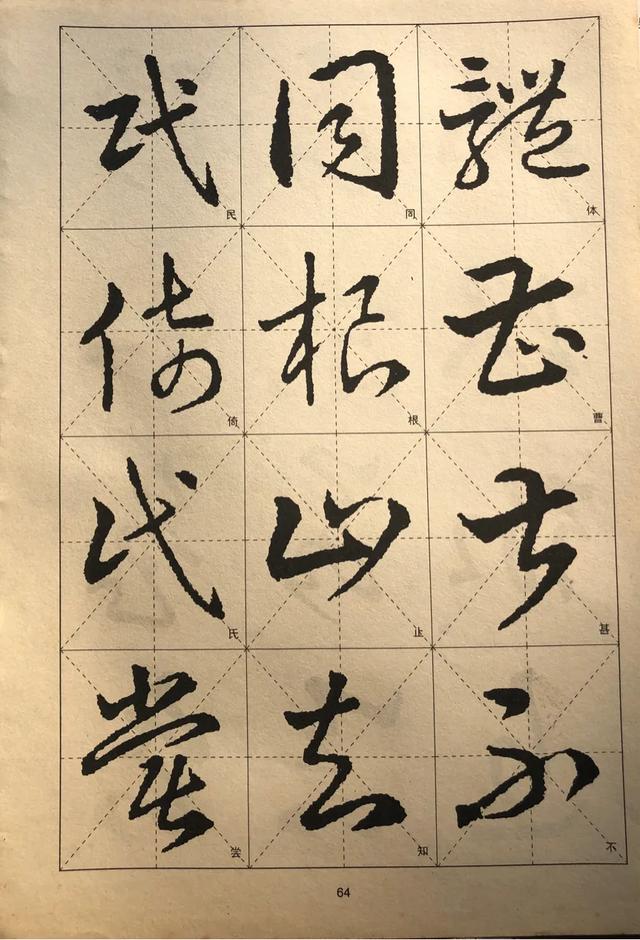 體曹甚不
体曹甚不
同根止知
同根止知
民倚氏嘗
民倚氏尝
64